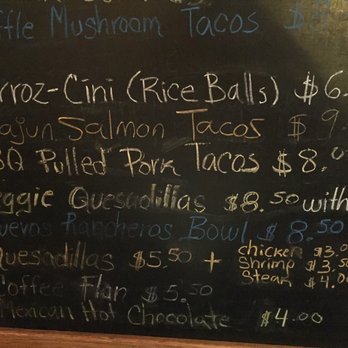 ffle Mushroom Tacos $
rroz-Cini (Rice Balls) $6.
ajun Salmon Tacos $9
BQ Pulled Pork Tacos $8.0
eggie Quesadillas $8.50 with
uevos Rancheros Bowl $8.50
Quesadillas $5.50 + chicken $3.0
Shrimp $3.50
Steak $4.00
Coffee Flan $5.50
Mexican Hot Chocolate $4.00